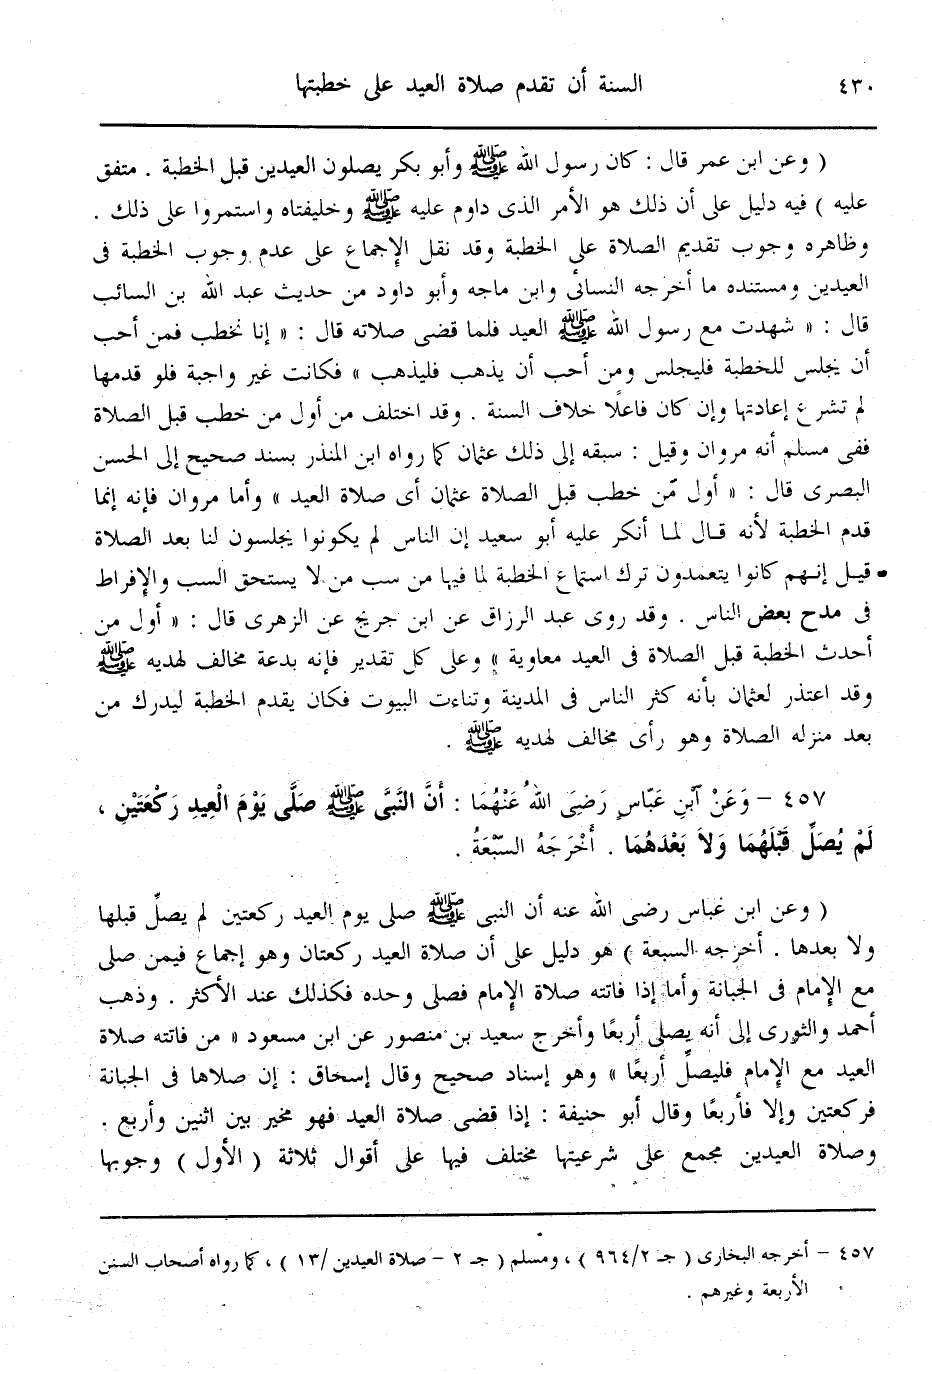 ٤٣٠ السنة أن تقدم صلاة العيد على خطبتها
( وعن ابن عمر قال : كان رسول الله ﷺ وأبو بكر يصلون العيدين قبل الخطبة . متفق
عليه ) فيه دليل على أن ذلك هو الأمر الذى داوم عليه ﷺ وخليفتاه واستمروا على ذلك .
وظاهره وجوب تقديم الصلاة على الخطبة وقد نقل الإجماع على عدم وجوب الخطبة فى
العيدين ومستنده ما أخرجه النسائى وابن ماجه وأبو داود من حديث عبد الله بن السائب
قال : « شهدت مع رسول الله ﷺ العيد فلما قضى صلاته قال : « إنا نخطب فمن أحب
أن يجلس للخطبة فليجلس ومن أحب أن يذهب فليذهب » فكانت غير واجبة فلو قدمها
لم تشرع إعادتها وإن كان فاعلًا خلاف السنة . وقد اختلف من أول من خطب قبل الصلاة
ففى مسلم أنه مروان وقيل : سبقه إلى ذلك عثمان كما رواه ابن المنذر بسند صحيح إلى الحسن
البصرى قال : « أول مّن خطب قبل الصلاة عثمان أى صلاة العيد » وأما مروان فإنه إنما
قدم الخطبة لأنه قال لما أنكر عليه أبو سعيد إن الناس لم يكونوا يجلسون لنا بعد الصلاة
قيل إنهم كانوا يتعمدون ترك استماع الخطبة لما فيها من سب من لا يستحق السب والإفراط
فى مدح بعض الناس . وقد روى عبد الرزاق عن ابن جريج عن الزهرى قال : « أول من
أحدث الخطبة قبل الصلاة فى العيد معاوية » وعلى كل تقدير فإنه بدعة مخالف لهديه ﷺ
وقد اعتذر لعثمان بأنه كثر الناس فى المدينة وتناءت البيوت فكان يقدم الخطبة ليدرك من
بعد منزله الصلاة وهو رأى مخالف لهديه ﷺ .
٤٥٧ – وَعَنْ آبْنِ عَبّاسٍ رَضِىَ اللهُ عَنْهُمَا : أَنَّ النَّبىَّ ﷺ صَلَّى يَوْمَ الْعِيدِ رَكْعَتَيْنِ ،
لَمْ يُصَلِّ قَبْلَهُمَا وَلاَ بَعْدَهُمَا . أَخْرَجَهُ السّبْعَةُ .
( وعن ابن عباس رضى الله عنه أن النبى ﷺ صلى يوم العيد ركعتين لم يصلِّ قبلها
ولا بعدها . أخرجه السبعة ) هو دليل على أن صلاة العيد ركعتان وهو إجماع فيمن صلى
مع الإمام فى الجبانة وأما إذا فاتته صلاة الإمام فصلى وحده فكذلك عند الأكثر . وذهب
أحمد والثورى إلى أنه يصلى أربعًا وأخرج سعيد بن منصور عن ابن مسعود « من فاتته صلاة
العيد مع الإمام فليصلِّ أربعًا » وهو إسناد صحيح وقال إسحاق : إن صلاها فى الجبانة
فركعتين وإلا فأربعًا وقال أبو حنيفة : إذا قضى صلاة العيد فهو مخير بين اثنين وأربع .
وصلاة العيدين مجمع على شرعيتها مختلف فيها على أقوال ثلاثة ( الأول ) وجوبها
٤٥٧ – أخرجه البخارى ( جـ ٩٦٤/٢ ) ، ومسلم ( جـ ٢ – صلاة العيدين /١٣ ) ، كما رواه أصحاب السنن
الأربعة وغيرهم .